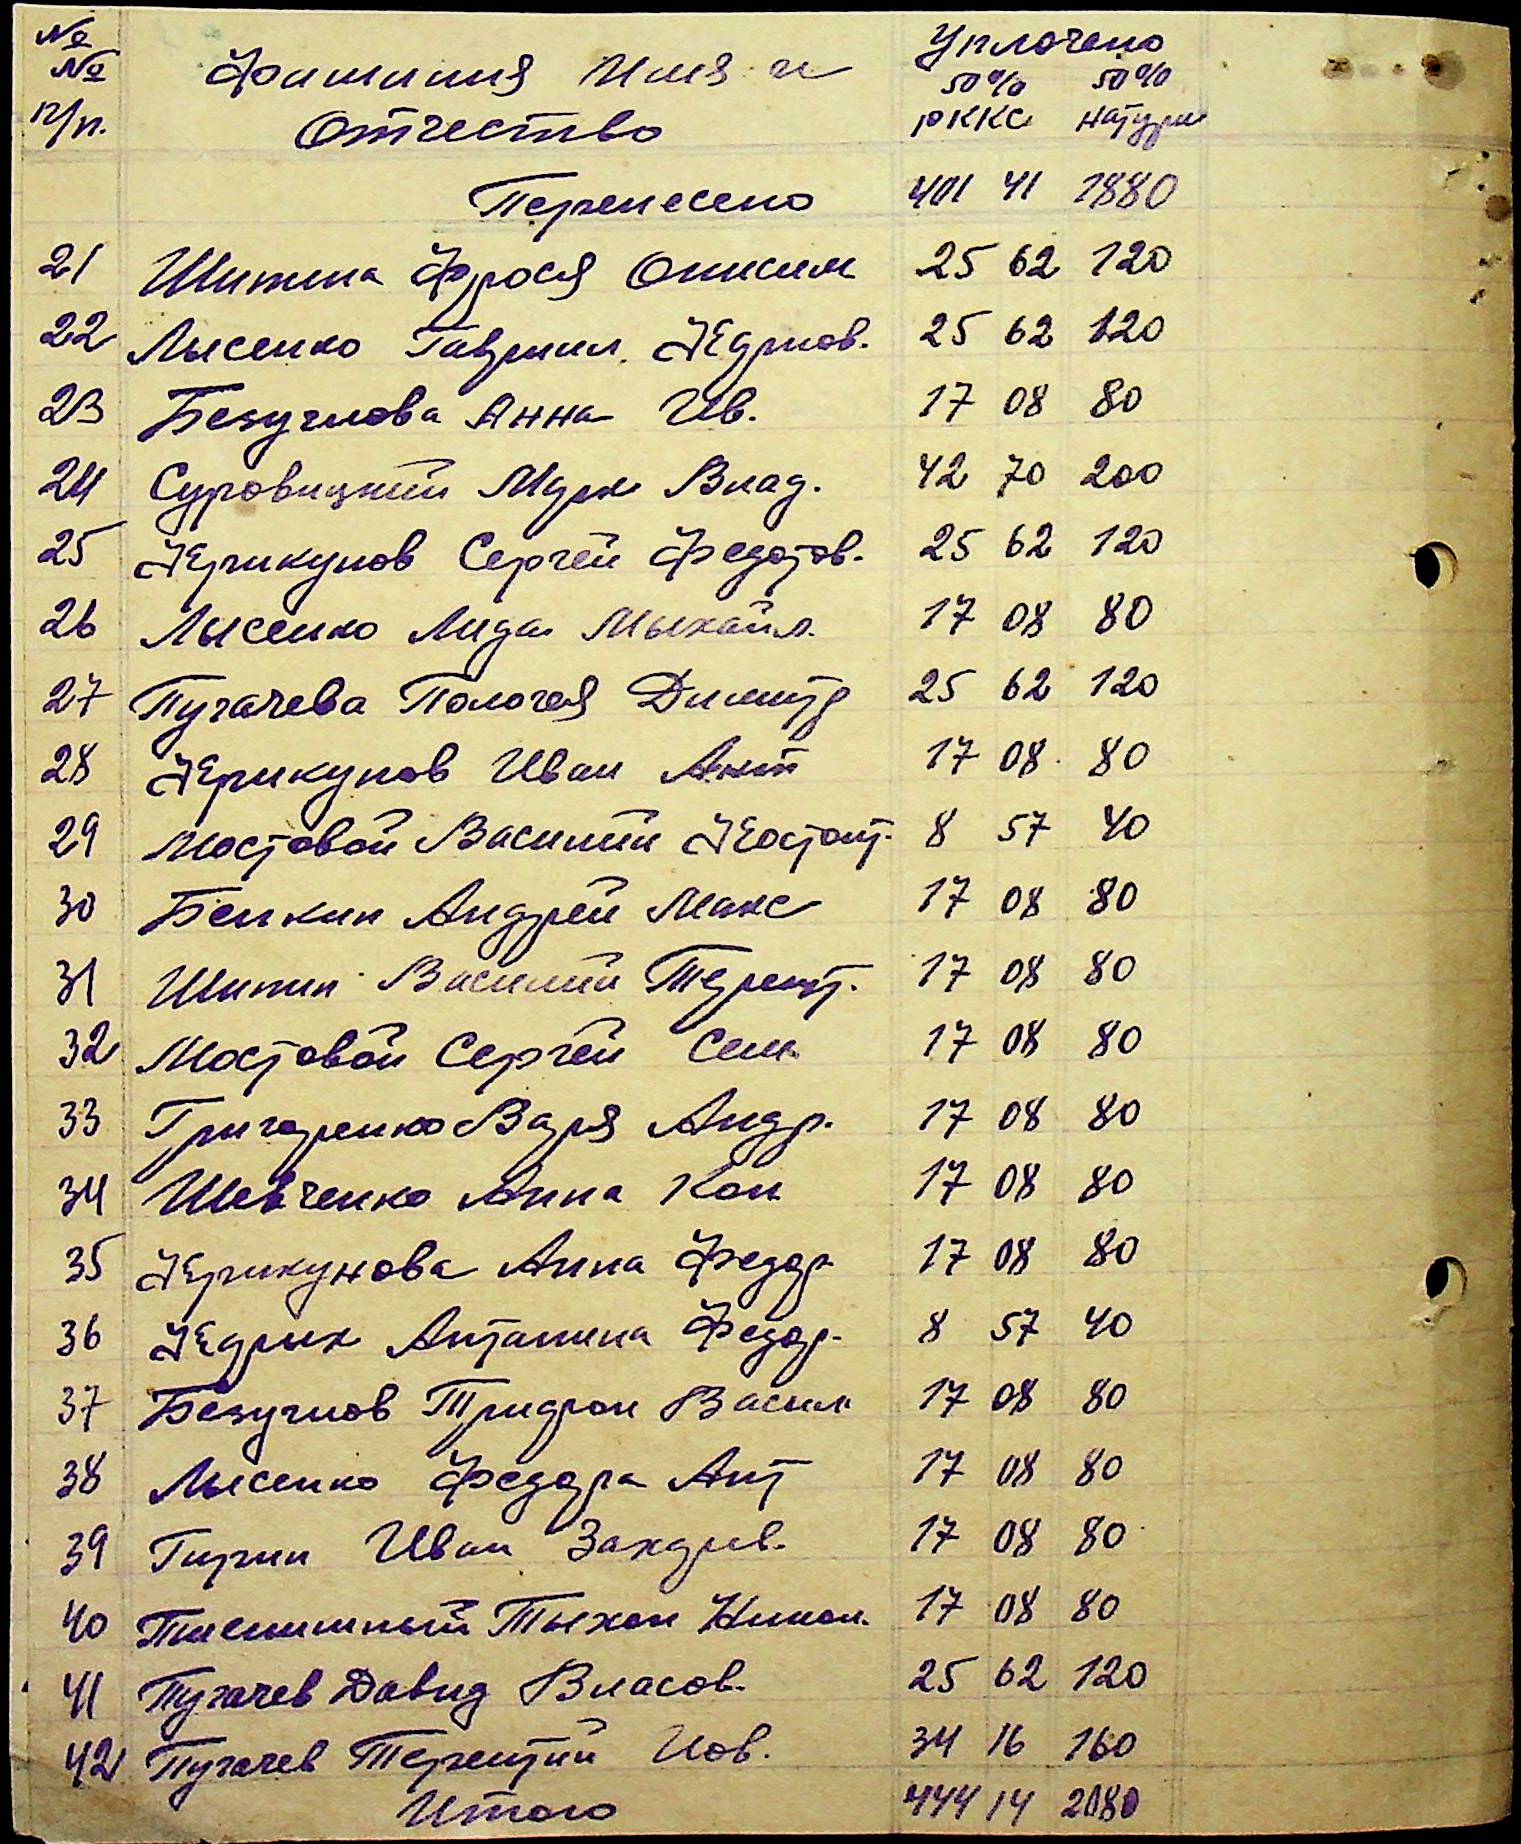 № № п/п. Фамилия Имя и Отчество Уплочено
50% РККС 50% натури
Перенесено 401 41 1880
21 Шипина Фрося Онисим 25 62 120
22 Лысенко Гавриил Кдриов. 25 62 120
23 Безуглова Анна Ив. 17 08 80
24 Суровицкий Марк Влад. 42 70 200
25 Крикунов Сергей Федотов. 25 62 120
26 Лысенко Лида Мыхайл. 17 08 80
27 Пугачева Пологея Димитр 25 62 120
28 Крикунов Иван Ант 17 08 80
29 Мостовой Василий Костант. 8 57 40
30 Белкин Андрей Макс 17 08 80
31 Шипин Василий Терент. 17 08 80
32 Мостовой Сергей Сем 17 08 80
33 Григоренко Варя Андр. 17 08 80
34 Шевченко Анна Кон 17 08 80
35 Крикунова Анна Федор 17 08 80
36 Антанина Федор. 8 57 40
37 Безуглов Тридрон Васил 17 08 80
38 Лысенко Федора Ант 17 08 80
39 Гирин Иван Захаров. 17 08 80
40 Пшеничный Тыхон Никол. 17 08 80
41 Пугачев Давид Власов. 25 62 120
42 Пугачев Терентий Иов. 34 16 160
Итого 444 14 2080